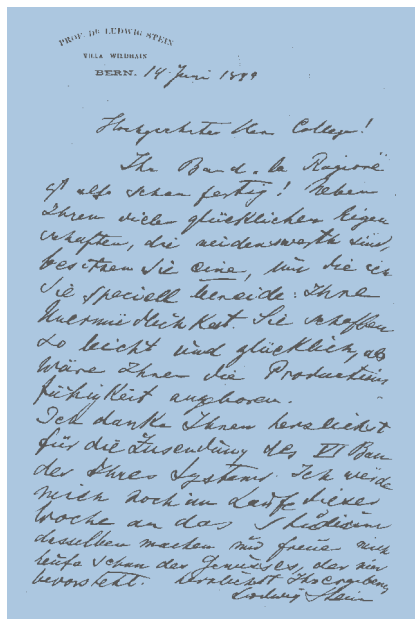 PROF. DR LUDWIG STEIN
VILLA WILDHAIN
BERN. 14. Juni 1899
Hochgeehrter Herr College!
Ihr Band "la Ragione
ist also schon fertig! Neben
Ihren vielen glücklichen Eigen
schaften, die neidenswerth sind,
besitzen Sie eine, um die ich
Sie speciell beneide: Ihre
Unermüdlichkeit. Sie schaffen
so leicht und glücklich, als
wäre Ihnen die Productions
fähigkeit angeboren.
Ich danke Ihnen herzlichst
für die Zusendung des VI Ban
des Ihres Systems. Ich werde
mich noch im Laufe dieser
Woche an das Studium
desselben machen und freue mich
heute schon des Genusses, der mir
bevorsteht. Herzlichst Ihr ergebener
Ludwig Stein